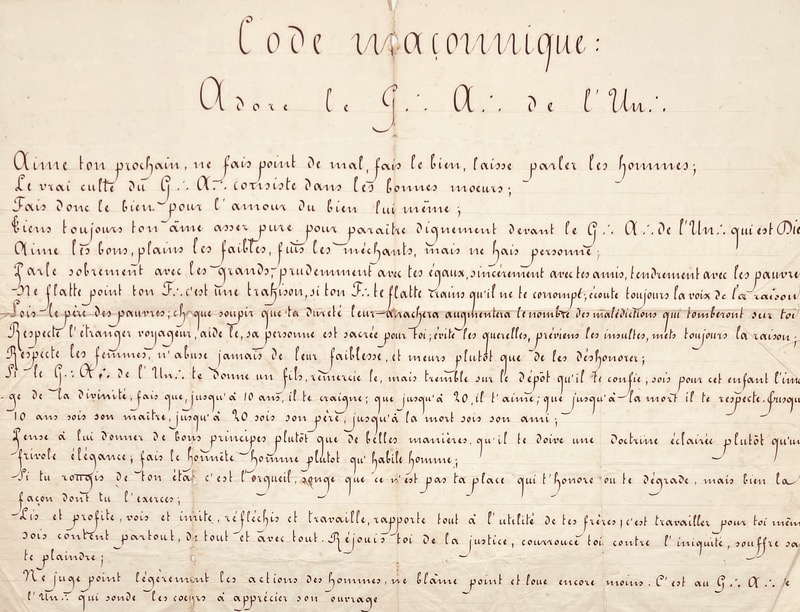 Code maçonnique :
Adore le G∴ A∴ de l'Un∴
Aime ton prochain, ne fais point de mal, fais le bien, laisse parler les hommes ;
Le vrai culte du G∴ A∴ consiste dans les bonnes moeurs ;
Fais donc le bien pour l'amour du bien lui même ;
Tiens toujours ton âme assez pure pour paraitre dignement devant le G∴ A∴ de l'Un∴ qui est Die
Aime les bons, plains les faibles, fuis les méchants, mais ne hais personne ;
Parle sobrement avec les grands, prudemment avec tes égaux, sincèrement avec tes amis, tendrement avec les pauvre
Ne flatte point ton F∴ c'est une trahison, si ton F∴ te flatte crains qu'il ne te corrompe ; écoute toujours la voix de la raison
Sois le père des pauvres ; chaque soupir que ta dureté leur arrachera augmentera le nombre des malédictions qui tomberont sur toi
Respecte l'étranger voyageur, aide le, sa personne est sacrée pour toi ; évite les querelles, préviens les insultes, mets toujours la raison ;
Respecte les femmes, n'abuse jamais de leur faiblesse, et meurs plutôt que de les déshonorer ;
Si le G∴ A∴ de l'Un∴ te donne un fils, remercie le, mais tremble sur le dépôt qu'il te confie, sois pour cet enfant l'ima
ge de la divinité ; fais que, jusqu'à 10 ans, il te craigne ; que jusqu'à 20, il t'aime ; que jusqu'à la mort il te respecte. Jusqu
10 ans sois son maitre, jusqu'à 20 sois son père, jusqu'à la mort sois son ami ;
Pense à lui donner de bons principes plutôt que de belles manières, qu'il te doive une doctrine éclairée plutôt qu'un
frivole élégance ; fais le honnête homme plutot qu'habile homme ;
Si tu rougis de ton état c'est l'orgueil, songe que ce n'est pas ta place qui t'honore ou te dégrade, mais bien la
façon dont tu l'exerces ;
Lis et profite, vois et imite, réfléchis et travaille, rapporte tout à l'utilité de tes frères ; c'est travailler pour toi mêm
sois content partout, de tout et avec tout. Réjouis toi de la justice, courrouce toi contre l'iniquité, souffre sa
te plaindre ;
Ne juge point légèrement les actions des hommes, ne blâme point et loue encore moins. C'est au G∴ A∴ de
l'Un∴ qui sonde les coeurs à apprécier son ouvrage